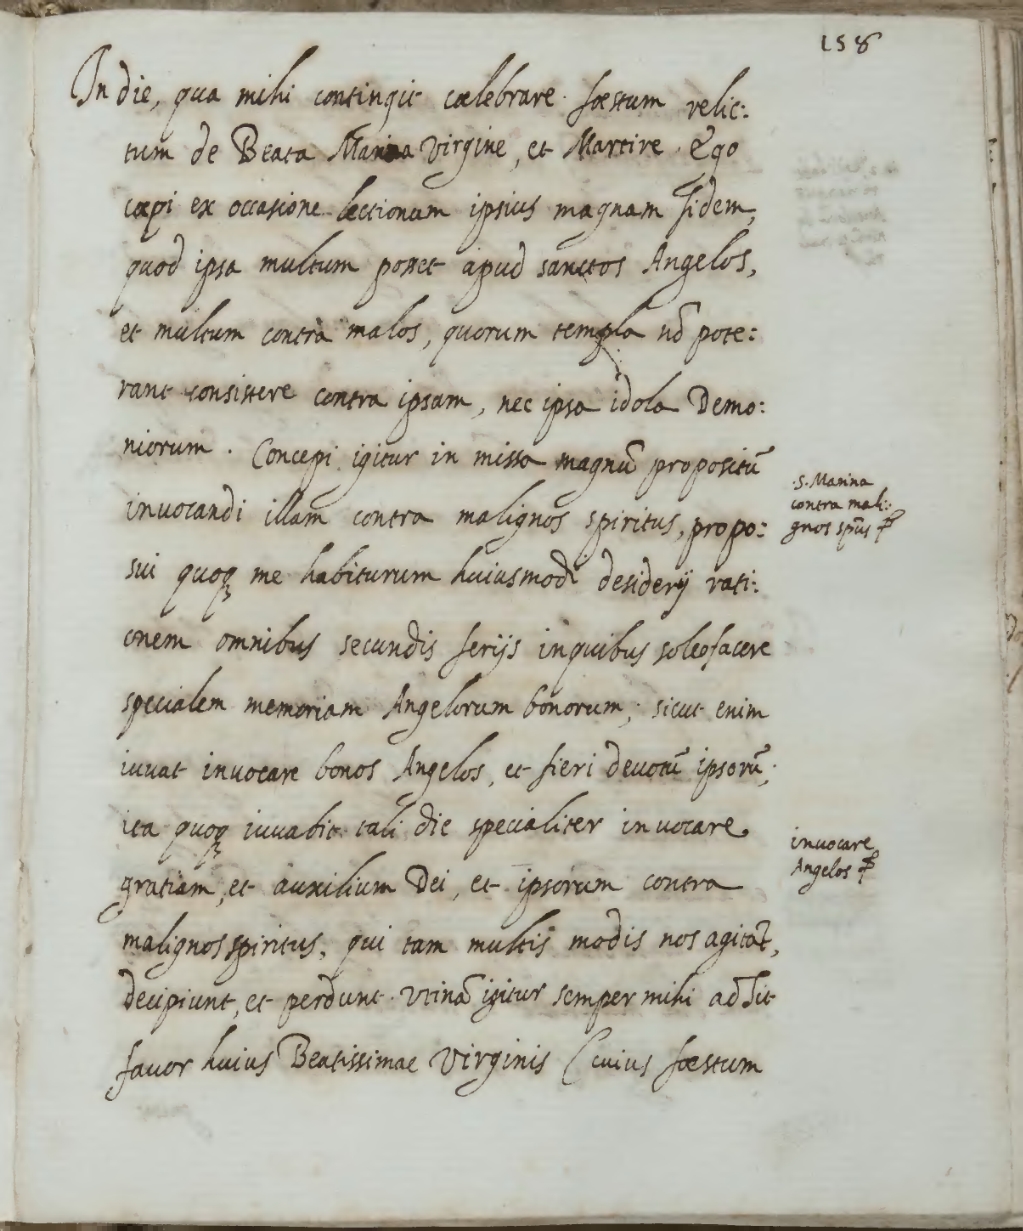 158
In die, qua mihi contingit cœlebrare fœstum relic:
tum de Beata Marina Virgine, et Martire. Ego
cœpi ex occasione lectionum ipsius magnam fidem,
quod ipsa multum posset apud sanctos Angelos,
et multum contra malos, quorum templa nō pote:
rant consistere contra ipsam, nec ipsa idola Demo:
niorum. Concepi igitur in missa magnū propositū
invocandi illam contra malignos spiritus, propo:
sui quoqꝫ me habiturum huiusmodi desiderij rati:
onem omnibus secundis ferijs in quibus soleo facere
specialem memoriam Angelorum bonorum; sicut enim
iuvat invocare bonos Angelos, et fieri devotū ipsorū;
ita quoqꝫ iuvabit tali die specialiter invocare
gratiam, et auxilium Dei, et ipsorum contra
malignos spiritus, qui tam multis modis nos agitāt,
decipiunt, et perdunt. Utinā igitur semper mihi adsit
favor huius Beatissimae Virginis (cuius fœstum
.S. Marina
contra mali:
gnos spūs
invocare
Angelos